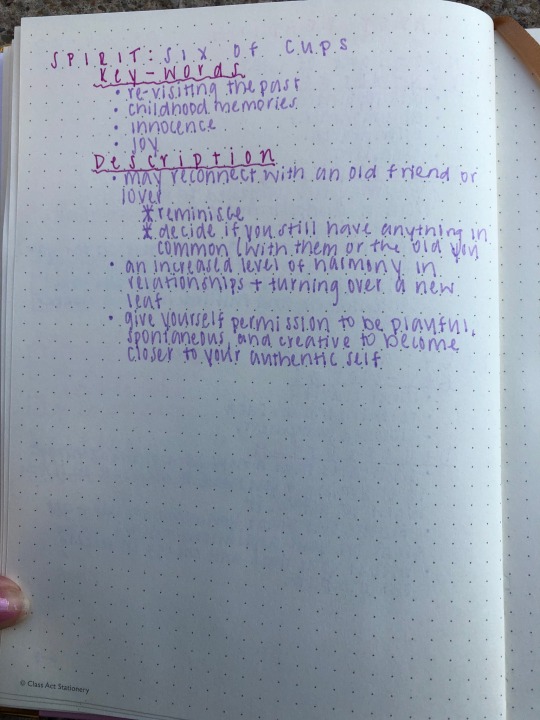 SPIRIT: six of cups
Key-words
• re-visiting the past
• childhood memories
• innocence
• joy
Description
• may reconnect with an old friend or
lover
* reminisce
* decide if you still have anything in
common (with them or the old you
• an increased level of harmony in
relationships + turning over a new
leaf
• give yourself permission to be playful,
spontaneous, and creative to become
closer to your authentic self
© Class Act Stationery